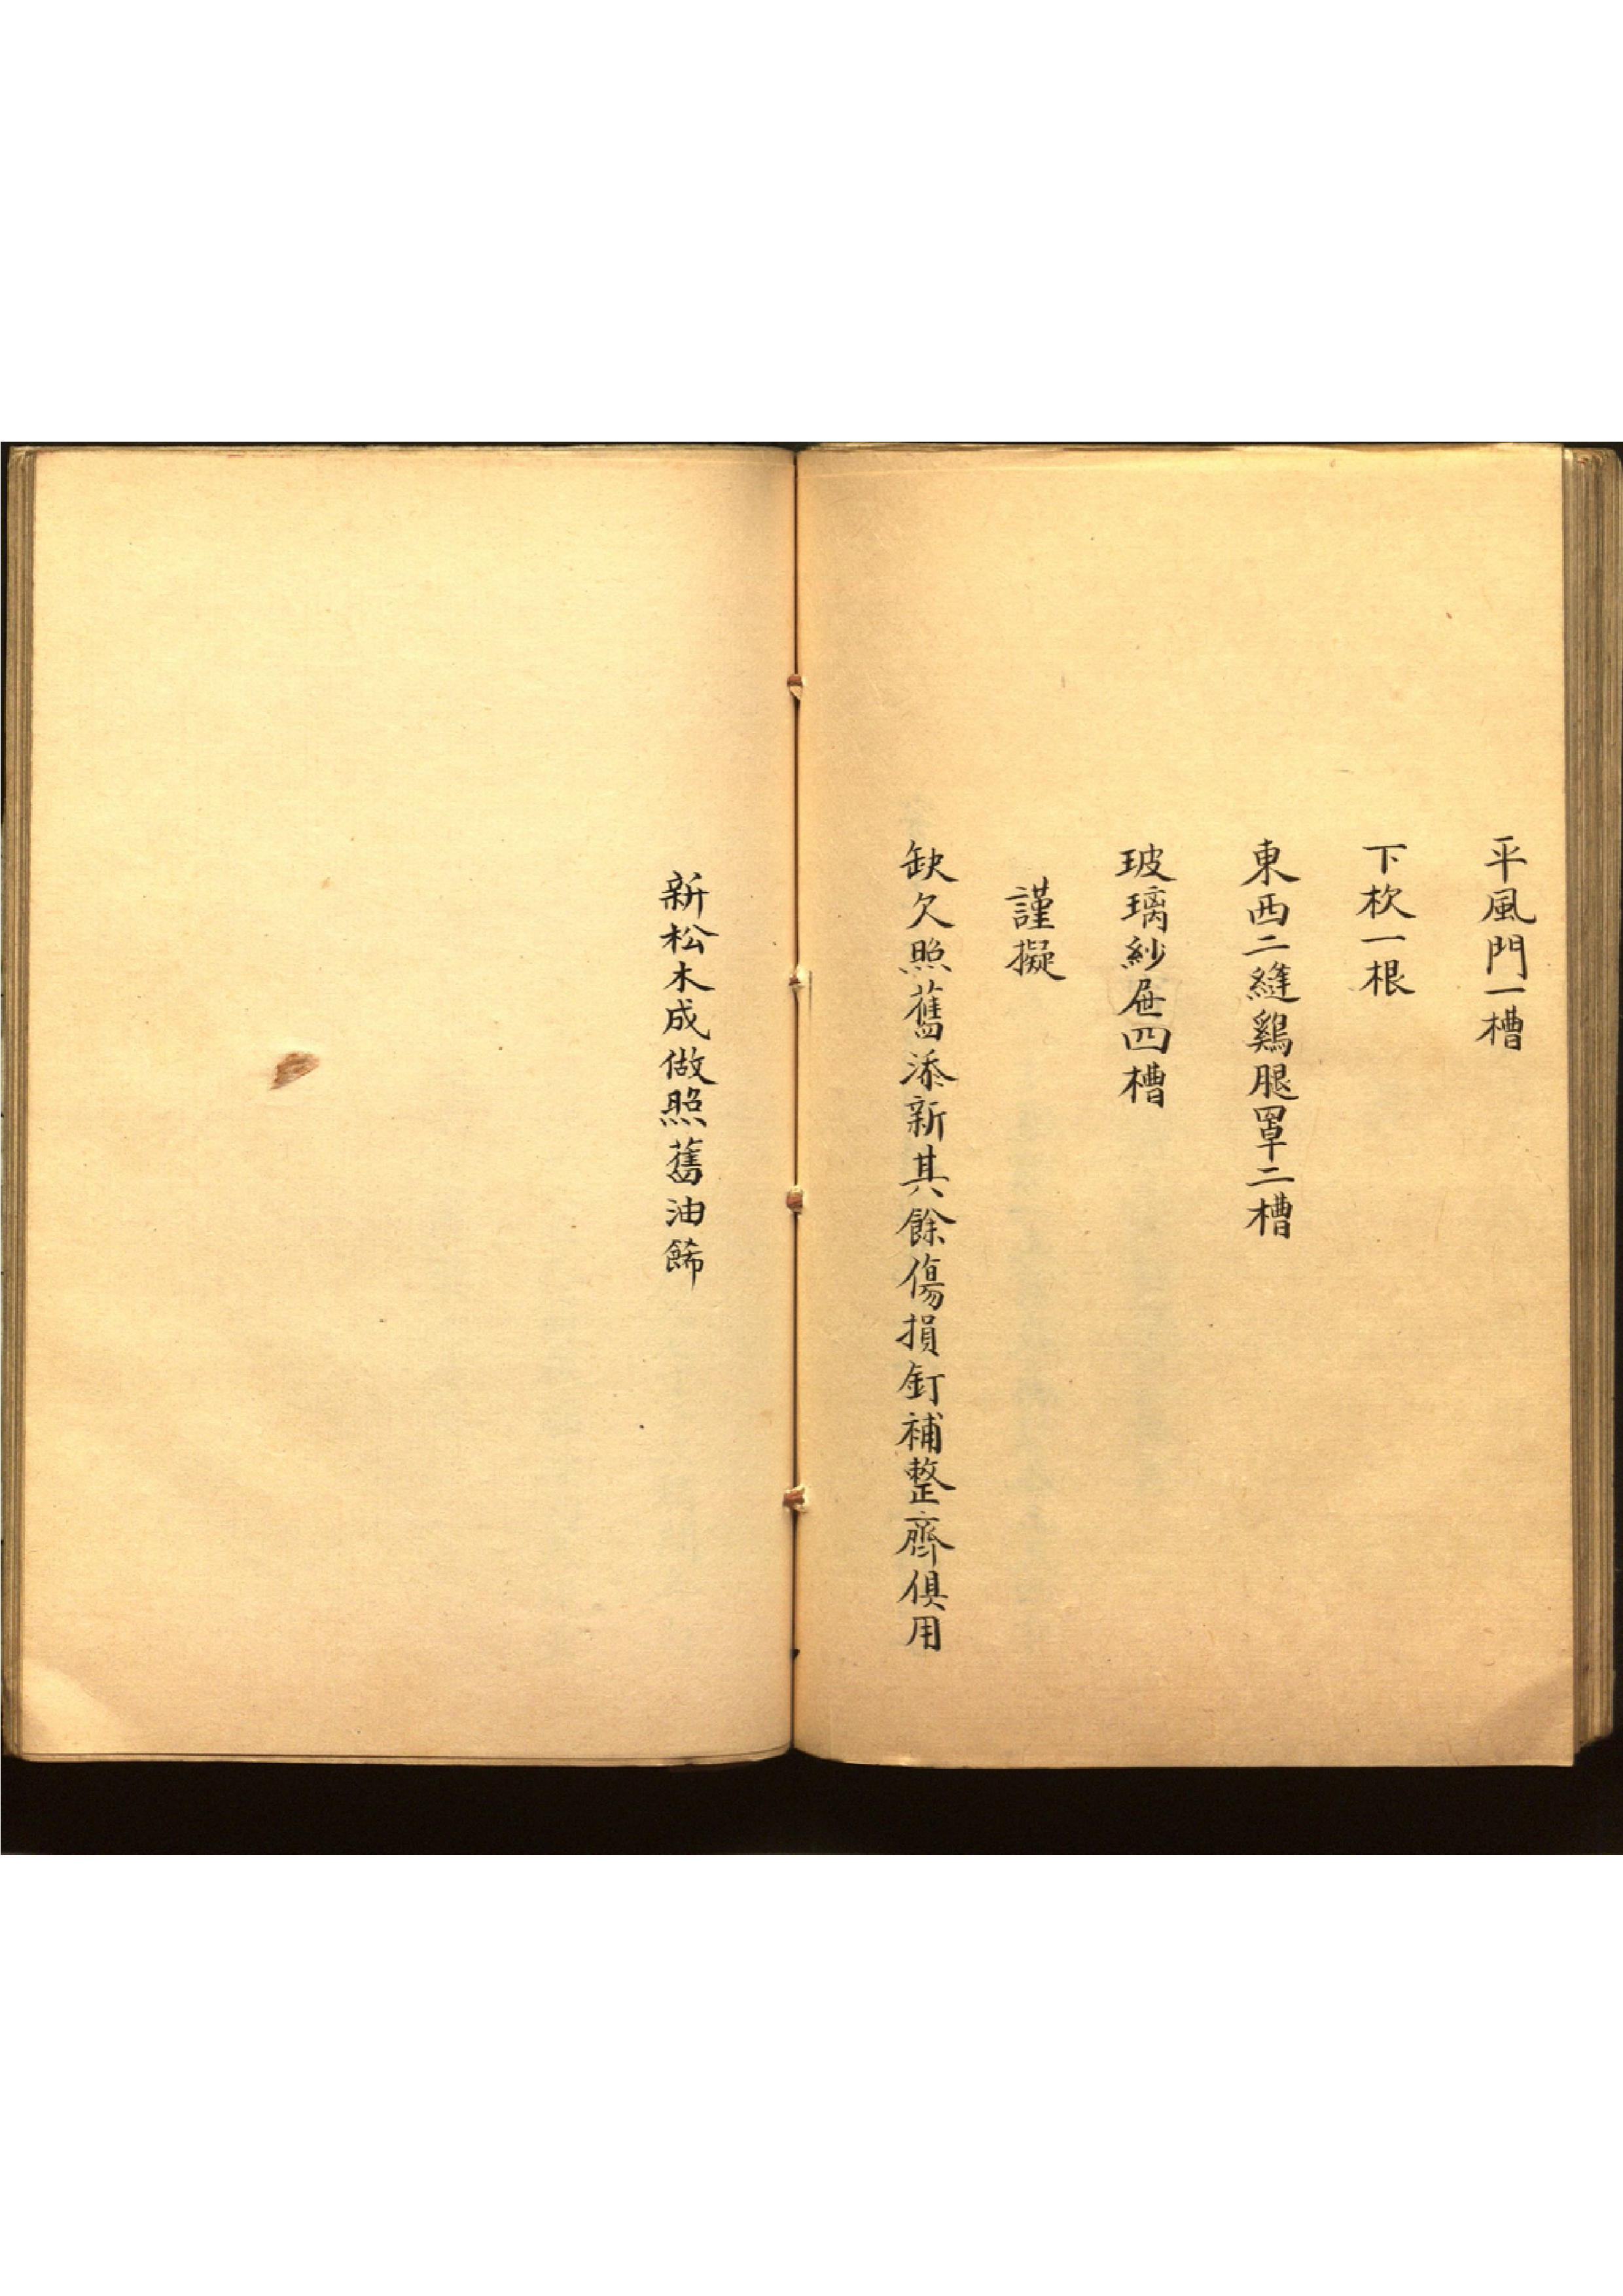 平風門一槽
下杴一根
東西二縫鷄腿罩二槽
玻璃紗屉四槽
謹擬
缺欠照舊添新其餘傷損釘補整齊俱用
新松木成做照舊油餙